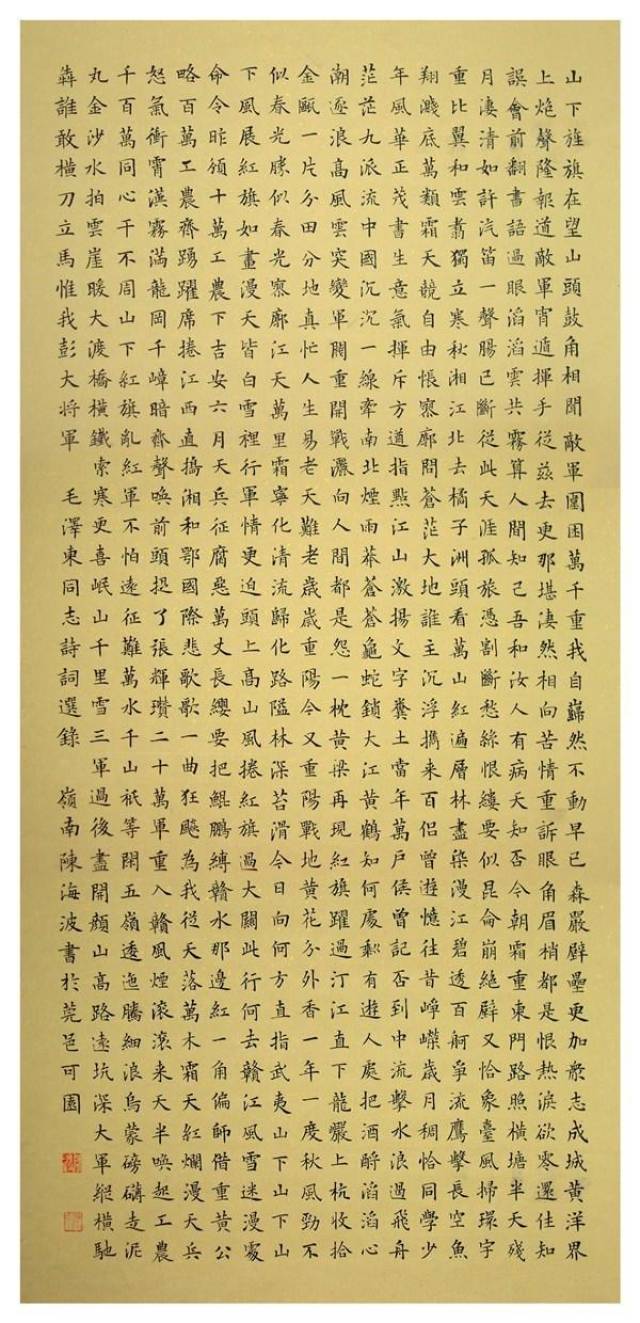 山下旌旗在望山頭鼓角相聞敵軍圍困萬千重我自巋然不動早已森嚴壁壘更加衆志成城黃洋界
上炮聲隆報道敵軍宵遁揮手從茲去更那堪淒然相向苦情重訴眼角眉梢都是恨熱淚欲零還住知
誤會前翻書語過眼滔滔雲共霧算人間知己吾和汝人有病天知否今朝霜重東門路照橫塘半天殘
月淒清如許汽笛一聲腸已斷從此天涯孤旅憑割斷愁絲恨縷要似昆侖崩絕壁又恰象臺風掃環宇
重比翼和雲翥獨立寒秋湘江北去橘子洲頭看萬山紅遍層林盡染漫江碧透百舸爭流鷹擊長空魚
翔淺底萬類霜天競自由悵寥廓問蒼茫大地誰主沉浮攜來百侶曾遊憶往昔崢嶸歲月稠恰同學少
年風華正茂書生意氣揮斥方遒指點江山激揚文字糞土當年萬戶侯曾記否到中流擊水浪遏飛舟
茫茫九派流中國沉沉一線穿南北煙雨莽蒼蒼龜蛇鎖大江黃鶴知何處剩有遊人處把酒酹滔滔心
潮逐浪高風雲突變軍閥重開戰灑向人間都是怨一枕黃粱再現紅旗躍過汀江直下龍巖上杭收拾
金甌一片分田分地真忙人生易老天難老歲歲重陽今又重陽戰地黃花分外香一年一度秋風勁不
似春光勝似春光寥廓江天萬里霜寧化清流歸化路隘林深苔滑今日向何方直指武夷山下山下山
下風展紅旗如畫漫天皆白雪裡行軍情更迫頭上高山風捲紅旗過大關此行何去贛江風雪迷漫處
命令昨頒十萬工農下吉安六月天兵征腐惡萬丈長纓要把鯤鵬縛贛水那邊紅一角偏師借重黃公
略百萬工農齊踴躍席捲江西直搗湘和鄂國際悲歌歌一曲狂飈為我從天落萬木霜天紅爛漫天兵
怒氣衝霄漢霧滿龍岡千嶂暗齊聲喚前頭捉了張輝瓚二十萬軍重入贛風煙滾滾來天半喚起工農
千百萬同心干不周山下紅旗亂紅軍不怕遠征難萬水千山衹等閒五嶺逶迤騰細浪烏蒙磅礴走泥
丸金沙水拍雲崖暖大渡橋橫鐵索寒更喜岷山千里雪三軍過後盡開顏山高路遠坑深大軍縱橫馳
犇誰敢橫刀立馬惟我彭大將軍 毛澤東同志詩詞選錄 嶺南陳海波書於莞邑可園